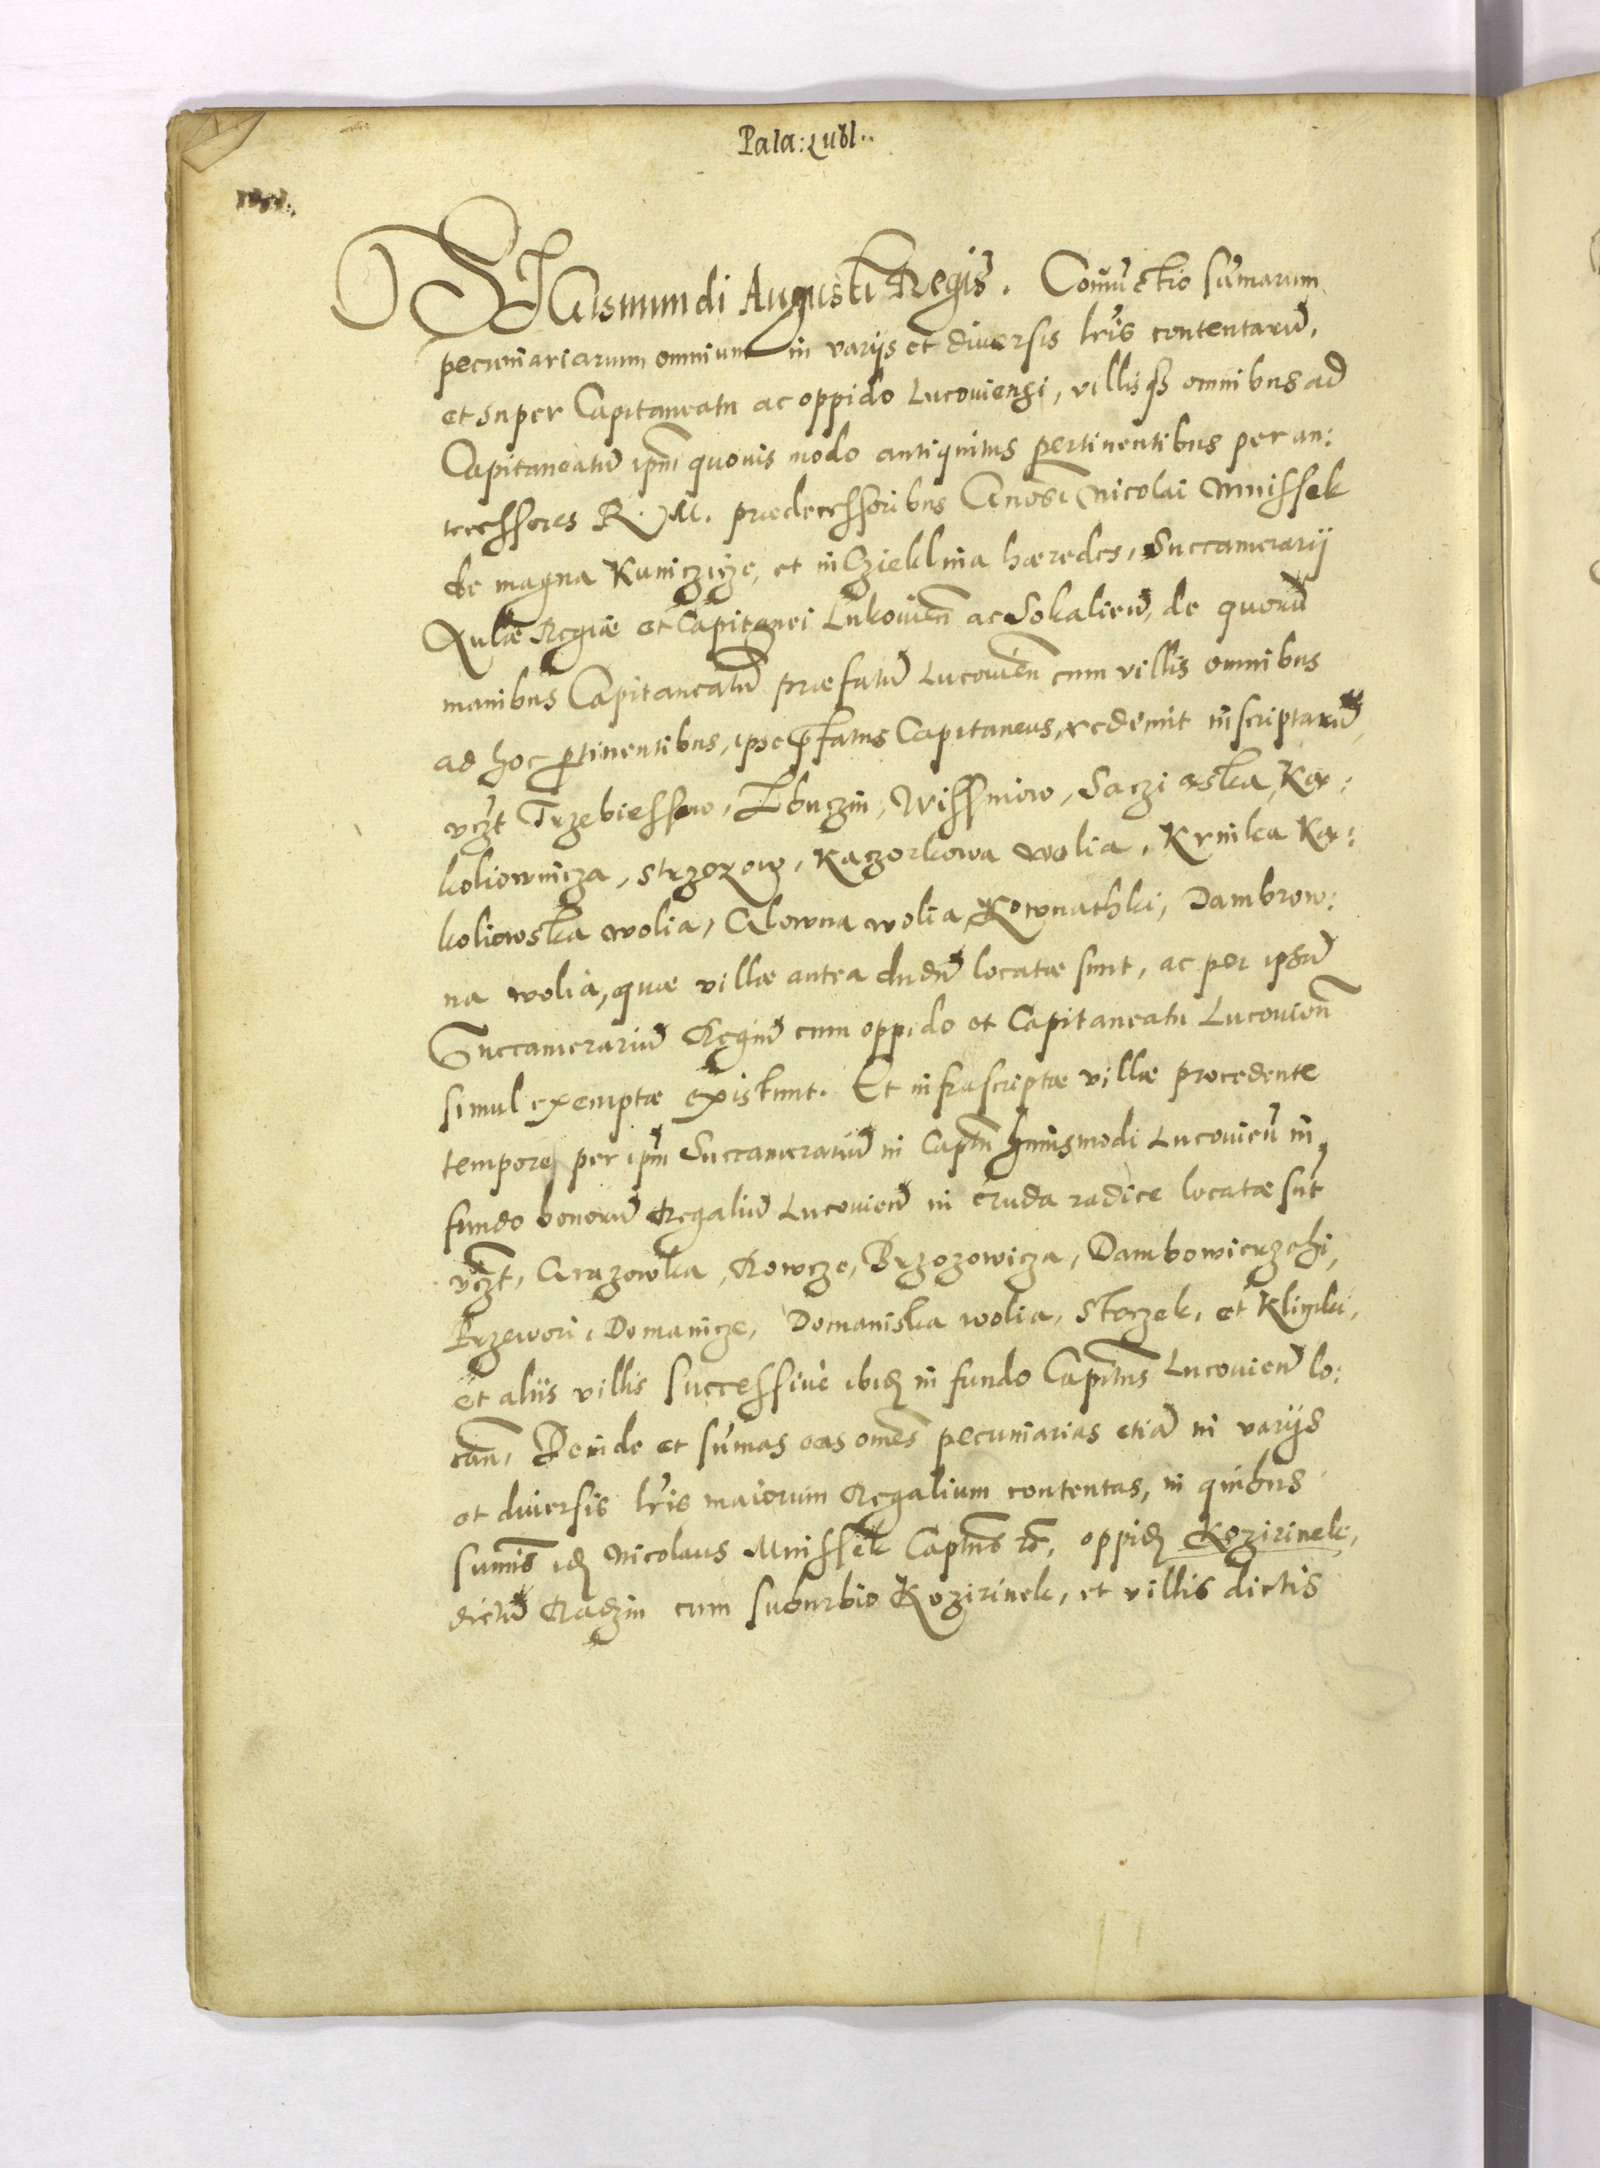 Pala: Lubl..
SIGismundi Augusti Regis. Coniũctio sũmarum
pecuniariarum omnium in varijs et diuersis lr̃is contentarũ,
et super Capitaneatu ac oppido Lucouiensi, villisq3 omnibus ad
Capitaneatũ ipm̃ quouis modo antiquitus pertinentibus per an:
tecessores R. M. praedecessoribus Gnosi Nicolai Mnissek
de magna Kuniczicze, et in Czieklina haeredes, Succamerarij
Aulae Regiae et Capitanei Lukouien̄ ac Sokalien̄, de quorũ
manibus Capitaneatũ praefatũ Lucouien̄ cum villis omnibus
ad hoc ptinentibus, ipse pfatus Capitaneus, redemit inscriptarũ,
vczt Trzebiessow, Zbuczin, Wissniow, Saczi aska, Kar:
koliownicza, Strzozow, Kaczorkowa wolia, Krnika Kar:
koliowska wolia, Glowna wolia, Kownathki, Dambrow:
na wolia, quae villae antea dudũ locatae sunt, ac per ipsũ
Succamerariũ Regiũ cum oppido et Capitaneatu Lucouien̄
simul exemptae existunt. Et infrascriptae villae procedente
tempore per ipm̃ Succamerariũ in Captũ huiusmodi Lucouien̄ in
fundo bonorũ Regaliũ Lucouien̄ in cruda radice locatae sũt
vczt, Grazowka, Rowcze, Brzozowicza, Dambowierzchi,
Przewori, Domanicze, Domaniska wolia, Stoczek, et Klimki,
et aliis villis successiuè ibid in fundo Capitnus Lucouien̄ lo:
can, Deinde et sũmas eas omẽs pecuniarias etiã in varijs
et diuersis lr̃is maiorum Regalium contentas, in quibus
sumis id Nicolaus Mnissek Captnus etc, oppid Kozirinek,
dictũ Radzin cum suburbio Kozirinek, et villis dictis